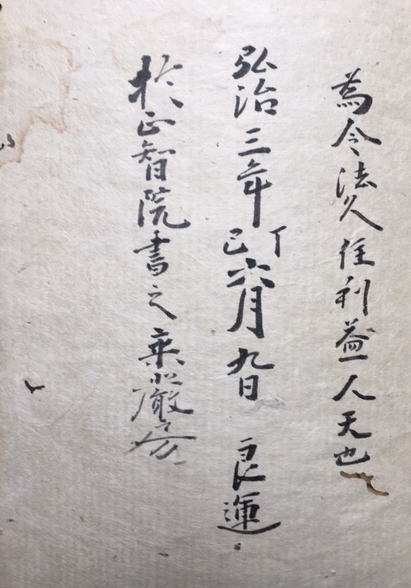 為令法久住利益人天也
弘治三年丁巳六月九日 良運
於正智院書之乗房